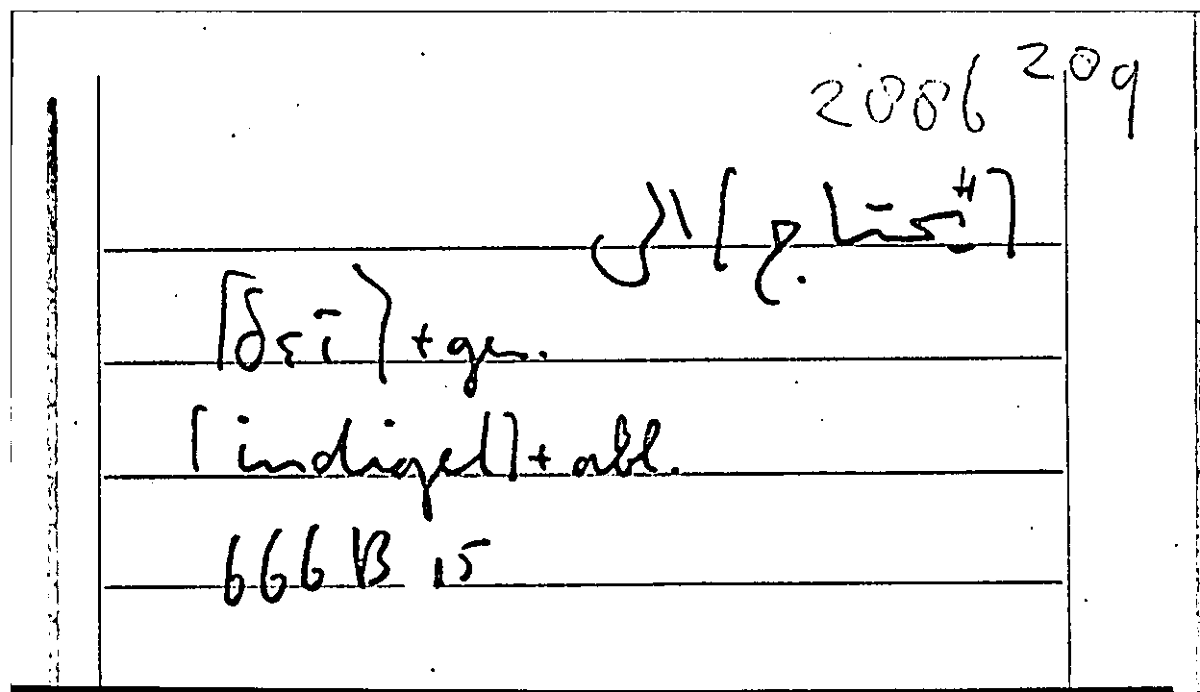 2006 209
الى
[δεῖ] + gen.
[indiget] + abl.
666 B 15